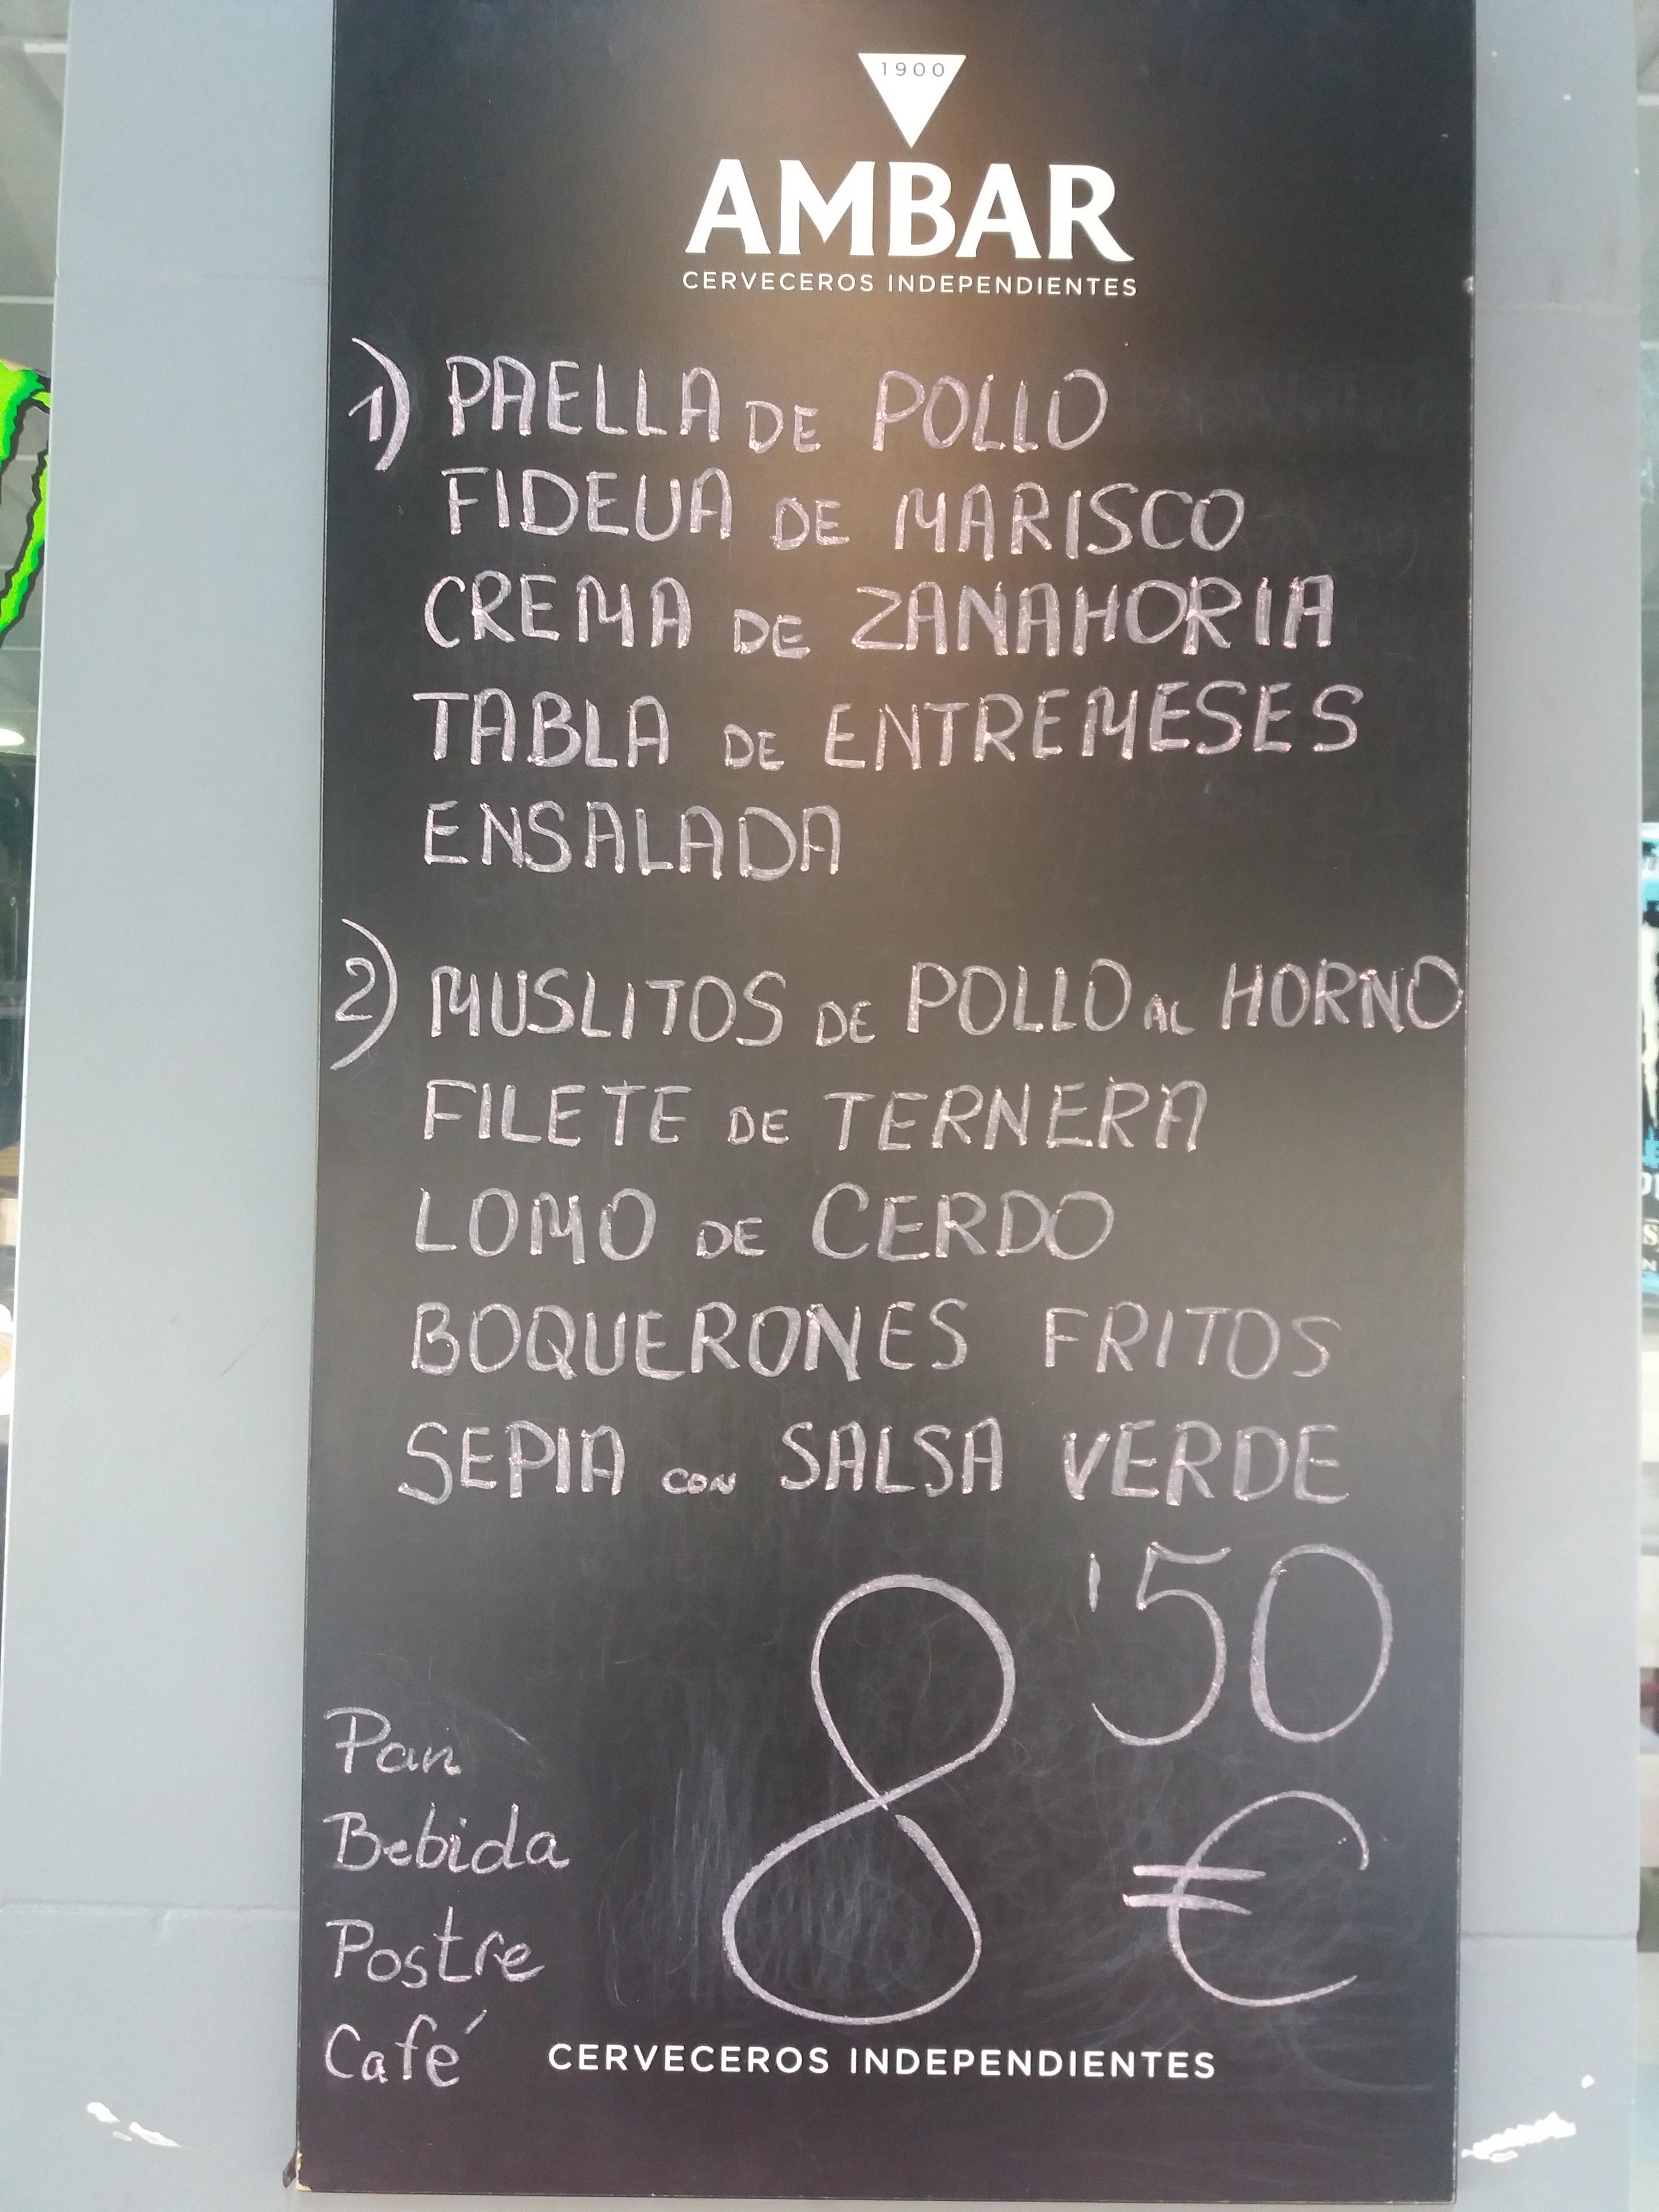 1900
AMBAR
CERVECEROS INDEPENDIENTES
1) PAELLA DE POLLO
FIDEUA DE MARISCO
CREMA DE ZANAHORIA
TABLA DE ENTREMESES
ENSALADA
2) MUSLITOS DE POLLO AL HORNO
FILETE DE TERNERA
LOMO DE CERDO
BOQUERONES FRITOS
SEPIA CON SALSA VERDE
8'50 €
Pan
Bebida
Postre
Café
CERVECEROS INDEPENDIENTES